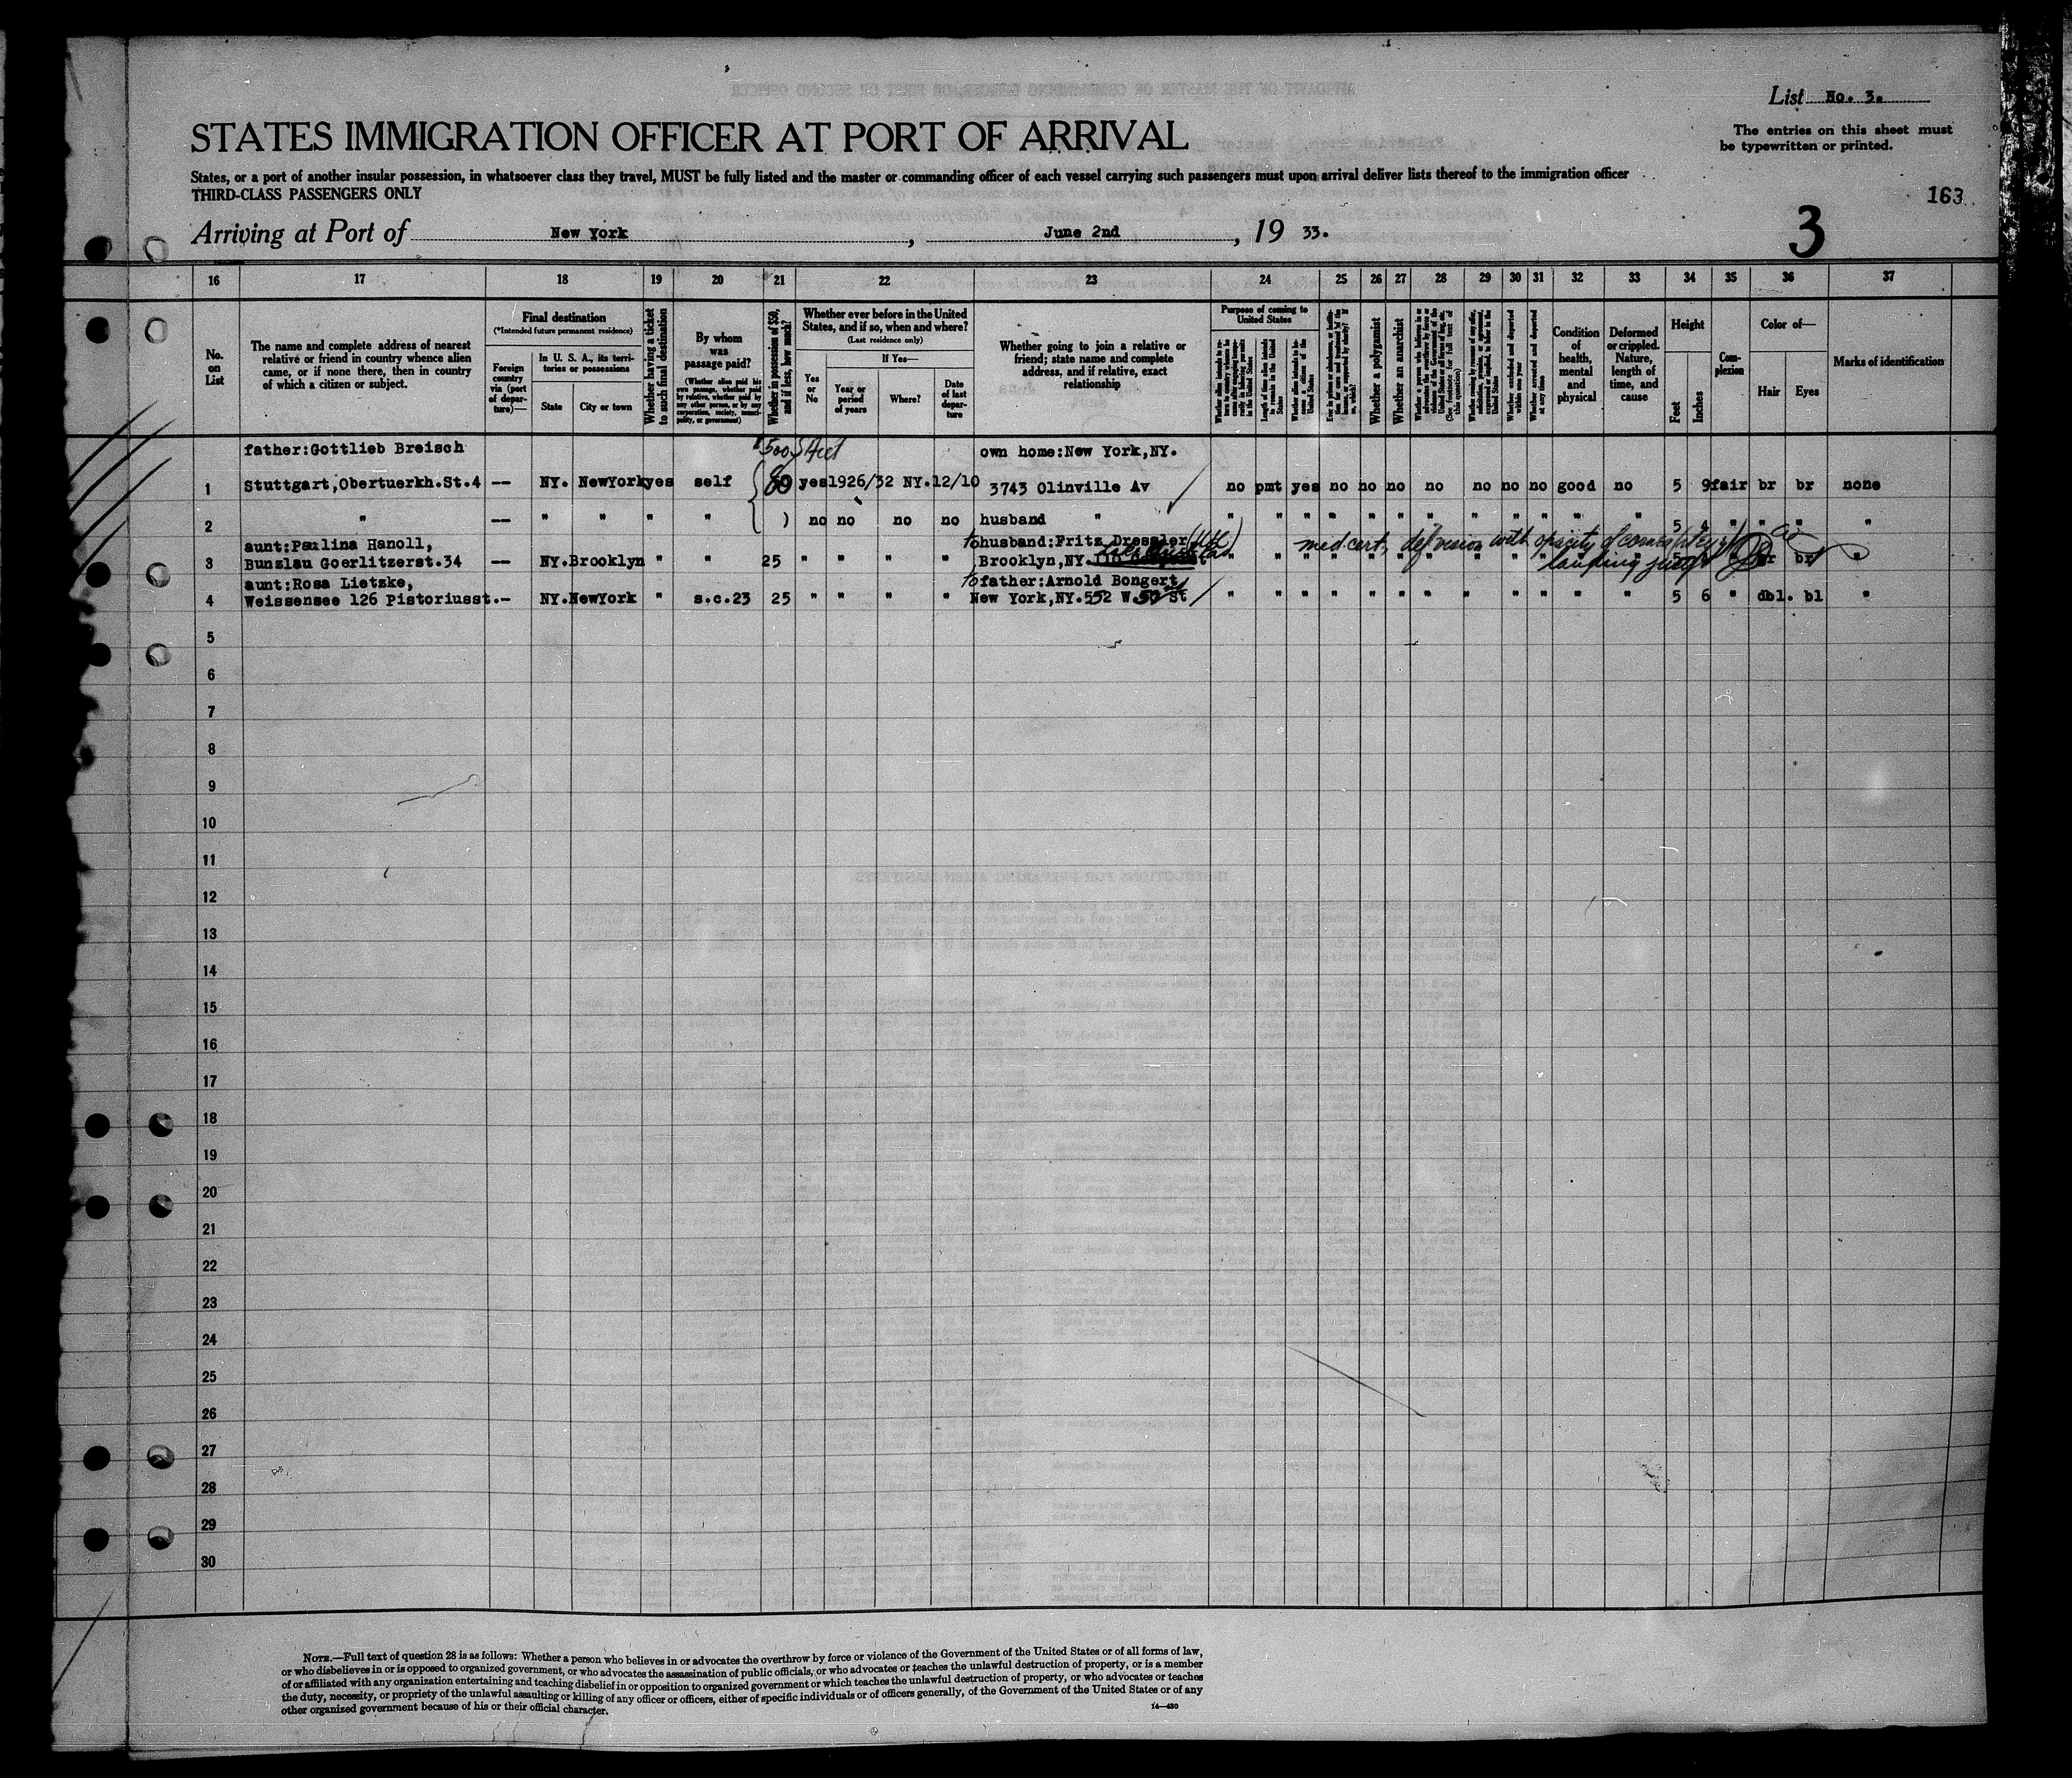 List No. 3.
STATES IMMIGRATION OFFICER AT PORT OF ARRIVAL
The entries on this sheet must
be typewritten or printed.
States, or a port of another insular possession, in whatsoever class they travel, MUST be fully listed and the master or commanding officer of each vessel carrying such passengers must upon arrival deliver lists thereof to the immigration officer
THIRD-CLASS PASSENGERS ONLY
163
3
Arriving at Port of New York, June 2nd, 19 33.
16 17 18 19 20 21 22 23 24 25 26 27 28 29 30 31 32 33 34 35 36 37
No.
on
List
The name and complete address of nearest
relative or friend in country whence alien
came, or if none there, then in country
of which a citizen or subject.
Final destination
(*Intended future permanent residence)
Foreign
country
via (port
of depar-
ture)—
In U. S. A., its terri-
tories or possessions
State
City or town
Whether having a ticket
to such final destination
By whom
was
passage paid?
(Whether alien paid his
own passage, whether paid
by relative, whether paid by
any other person, or by any
corporation, society, munici-
pality, or government)
Whether in possession of $50,
and if less, how much?
Whether ever before in the United
States, and if so, when and where?
(Last residence only)
Yes
or
No
If Yes—
Year or
period
of years
Where?
Date
of last
depar-
ture
Whether going to join a relative or
friend; state name and complete
address, and if relative, exact
relationship
Purpose of coming to
United States
Length of time alien intends
to remain in the United
States
Whether alien intends to be-
come a citizen of the
United States
Whether a polygamist
Whether an anarchist
(See footnote for full text of
this question)
Whether excluded and deported
within one year
Whether arrested and deported
at any time
Condition
of
health,
mental
and
physical
Deformed
or crippled.
Nature,
length of
time, and
cause
Height
Feet
Inches
Com-
plexion
Color of—
Hair
Eyes
Marks of identification
father:Gottlieb Breisch $500 own home:New York,NY.
1 Stuttgart,Obertuerkh.St.4 -- NY. NewYork yes self 80 yes 1926/32 NY. 12/10 3743 Olinville Av no pmt yes no no no no no no no good no 5 9 fair br br none
2 " -- " " " " ) no no no no husband " " " " " " " " " " " " " 5 4 " " " "
aunt:Paulina Hanoll, to husband:Fritz Dressler med. cert. def vision with opacity of cornea
3 Bunzlau Goerlitzerst.34 -- NY. Brooklyn " " 25 " " " " Brooklyn,NY. " " " br "
aunt:Rosa Lietzke, to father:Arnold Bongert
4 Weissensee 126 Pistoriusst.-- NY. NewYork " s.c.23 25 " " " " New York,NY.552 W. 50 St " " " " " " " " " " " " 5 6 " dbl. bl "
5
6
7
8
9
10
11
12
13
14
15
16
17
18
19
20
21
22
23
24
25
26
27
28
29
30
NOTE.—Full text of question 28 is as follows: Whether a person who believes in or advocates the overthrow by force or violence of the Government of the United States or of all forms of law,
or who disbelieves in or is opposed to organized government, or who advocates the assassination of public officials, or who advocates or teaches the unlawful destruction of property, or is a member
of or affiliated with any organization entertaining and teaching disbelief in or opposition to organized government or which teaches the unlawful destruction of property, or who advocates or teaches
the duty, necessity, or propriety of the unlawful assaulting or killing of any officer or officers, either of specific individuals or of officers generally, of the Government of the United States or of any
other organized government because of his or their official character.
14—430